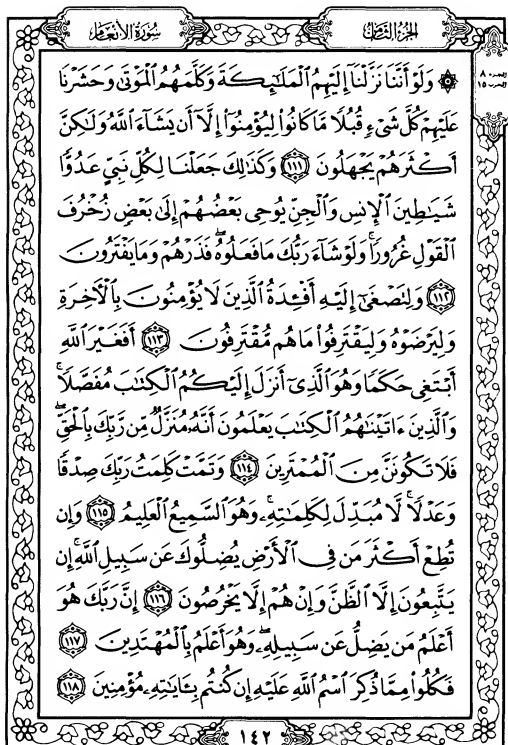 سُورَةُ الأَنْعَامِ
الجُزْءُ الثَّامِنُ
۞ وَلَوْ أَنَّنَا نَزَّلْنَا إِلَيْهِمُ ٱلْمَلَـٰٓئِكَةَ وَكَلَّمَهُمُ ٱلْمَوْتَىٰ وَحَشَرْنَا
عَلَيْهِمْ كُلَّ شَىْءٍ قُبُلًا مَّا كَانُوا۟ لِيُؤْمِنُوٓا۟ إِلَّآ أَن يَشَآءَ ٱللَّهُ وَلَـٰكِنَّ
أَكْثَرَهُمْ يَجْهَلُونَ ١١١ وَكَذَٰلِكَ جَعَلْنَا لِكُلِّ نَبِىٍّ عَدُوًّا
شَيَـٰطِينَ ٱلْإِنسِ وَٱلْجِنِّ يُوحِى بَعْضُهُمْ إِلَىٰ بَعْضٍ زُخْرُفَ
ٱلْقَوْلِ غُرُورًا ۚ وَلَوْ شَآءَ رَبُّكَ مَا فَعَلُوهُ ۖ فَذَرْهُمْ وَمَا يَفْتَرُونَ
١١٢ وَلِتَصْغَىٰٓ إِلَيْهِ أَفْـِٔدَةُ ٱلَّذِينَ لَا يُؤْمِنُونَ بِٱلْـَٔاخِرَةِ
وَلِيَرْضَوْهُ وَلِيَقْتَرِفُوا۟ مَا هُم مُّقْتَرِفُونَ ١١٣ أَفَغَيْرَ ٱللَّهِ
أَبْتَغِى حَكَمًا وَهُوَ ٱلَّذِىٓ أَنزَلَ إِلَيْكُمُ ٱلْكِتَـٰبَ مُفَصَّلًا ۚ
وَٱلَّذِينَ ءَاتَيْنَـٰهُمُ ٱلْكِتَـٰبَ يَعْلَمُونَ أَنَّهُۥ مُنَزَّلٌ مِّن رَّبِّكَ بِٱلْحَقِّ ۖ
فَلَا تَكُونَنَّ مِنَ ٱلْمُمْتَرِينَ ١١٤ وَتَمَّتْ كَلِمَتُ رَبِّكَ صِدْقًا
وَعَدْلًا ۚ لَّا مُبَدِّلَ لِكَلِمَـٰتِهِۦ ۚ وَهُوَ ٱلسَّمِيعُ ٱلْعَلِيمُ ١١٥ وَإِن
تُطِعْ أَكْثَرَ مَن فِى ٱلْأَرْضِ يُضِلُّوكَ عَن سَبِيلِ ٱللَّهِ ۚ إِن
يَتَّبِعُونَ إِلَّا ٱلظَّنَّ وَإِنْ هُمْ إِلَّا يَخْرُصُونَ ١١٦ إِنَّ رَبَّكَ هُوَ
أَعْلَمُ مَن يَضِلُّ عَن سَبِيلِهِۦ ۖ وَهُوَ أَعْلَمُ بِٱلْمُهْتَدِينَ ١١٧
فَكُلُوا۟ مِمَّا ذُكِرَ ٱسْمُ ٱللَّهِ عَلَيْهِ إِن كُنتُم بِـَٔايَـٰتِهِۦ مُؤْمِنِينَ ١١٨
١٤٢